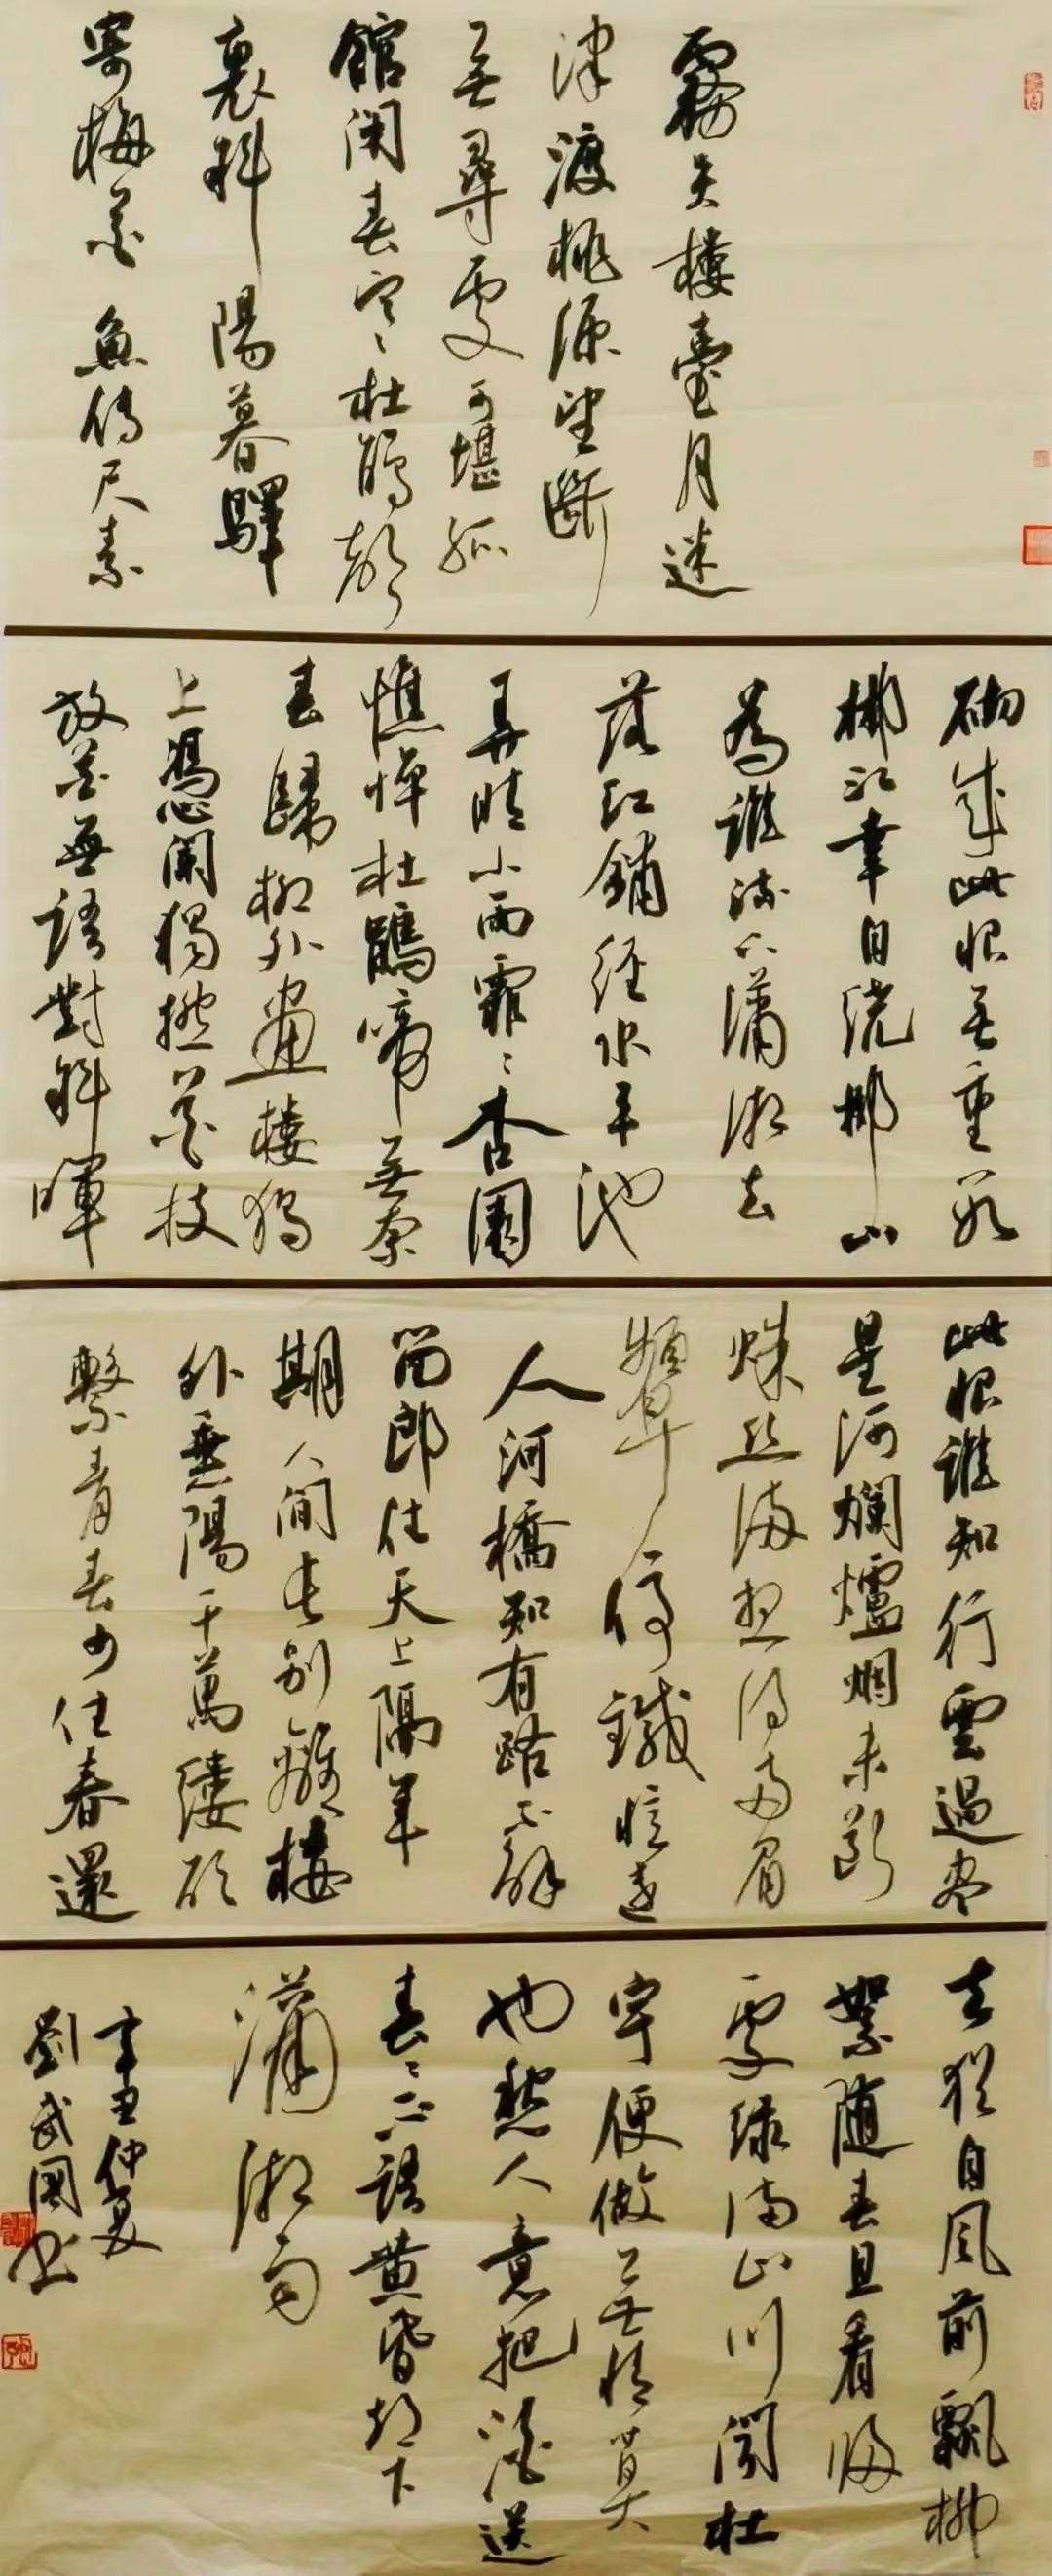 霧失樓臺月迷
津渡桃源望斷
無尋處可堪孤
館閉春寒杜鵑聲
裏斜陽暮驛
寄梅花魚傳尺素
砌成此恨無重數
郴江幸自繞郴山
為誰流下瀟湘去
落紅鋪徑水平池
弄晴小雨霏〻杏園
憔悴杜鵑啼無奈
春歸柳外畫樓獨
上憑闌獨撚花枝
放花無語對斜暉
此恨誰知行雲過盡
星河爛爐烟未斷
蛛絲滿想得兩眉
顰停鍼憶遠
人河橋知有路不解
留郎住天上隔年
期人間長別離樓
外垂陽千萬縷欲
繫青春少住春還
去猶自風前飄柳
絮隨春且看歸
處綠滿山川聞杜
宇便做無情莫
也愁人意把酒送
春〻不語黃昏却下
瀟湘雨
辛丑仲夏
劉武國書